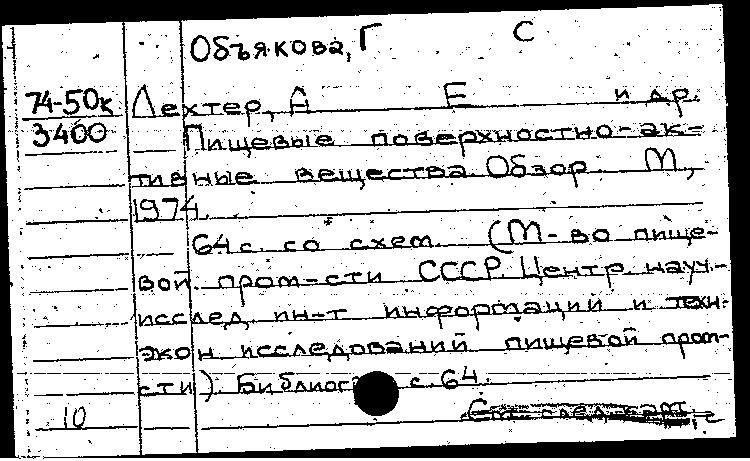 Объякова, Г С
74-50к Лехтер, А Е и др.
3400 Пищевые поверхностно-ак-
тивные вещества. Обзор. М.,
1974.
64 с. со схем. (М-во пище-
вой пром-сти СССР. Центр. науч.-
исслед. ин-т информации и техн.-
экон. исследований пищевой пром-
сти). Библиогр. с. 64.
10